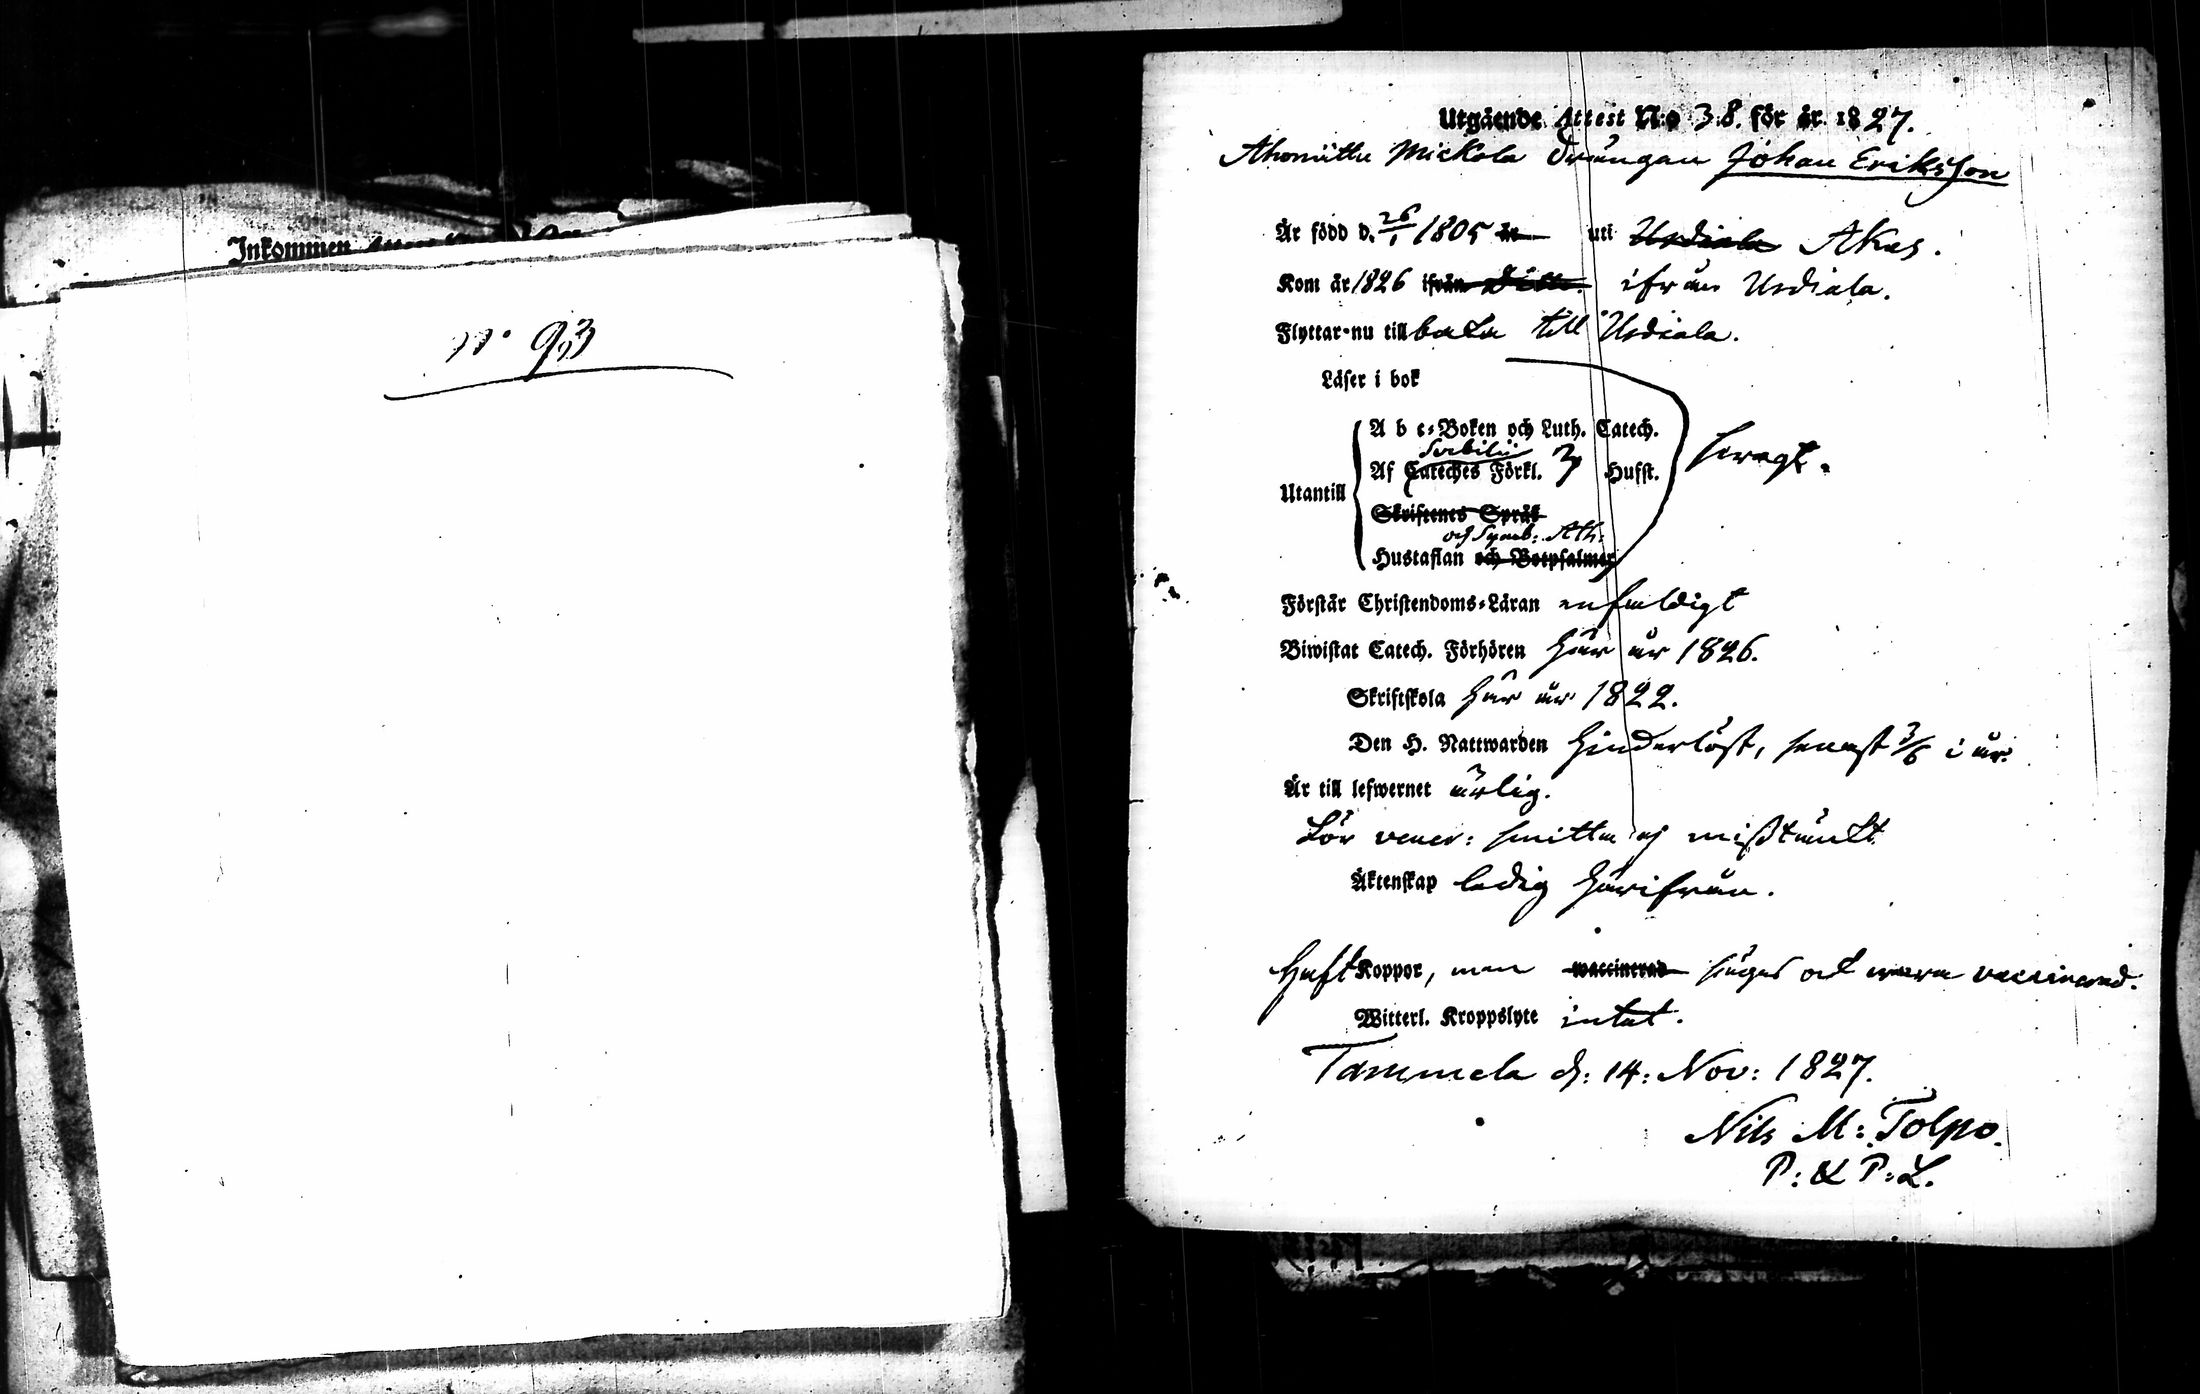 Inkommen
N:o 93
Utgående Attest N:o 38. för år 1827.
Ahonitty Mickola Drängen Johan Eriksson
Är född d. 26/1 1805 in uti Urdiala Akas.
Kom år 1826 ifrån ifrån Urdiala.
Flyttar nu till baka till Urdiala.
Läser i bok
A b c-Boken och Luth. Catech.
Af Cateches Förkl. 3 Hufst.
svagt.
Utantill
Skriftenes Språk
och Symb: Ath:
Hustaflan och Botpsalmer
Förstår Christendoms-Läran enfaldigt
Biwistat Catech. Förhören här år 1826.
Skriftskola här år 1822.
Den H. Nattwarden hinderlöst, senast 3/6 i år.
Är till lefwernet ärlig.
För vener: smitta ej misstänkt
Äktenskap ledig härifrån.
Haft Koppor, men waccinerad säges ock vara vaccinerad.
Witterl. Kroppslyte intet.
Tammela d: 14: Nov: 1827.
Nils M: Tolpo.
P: & P: L.